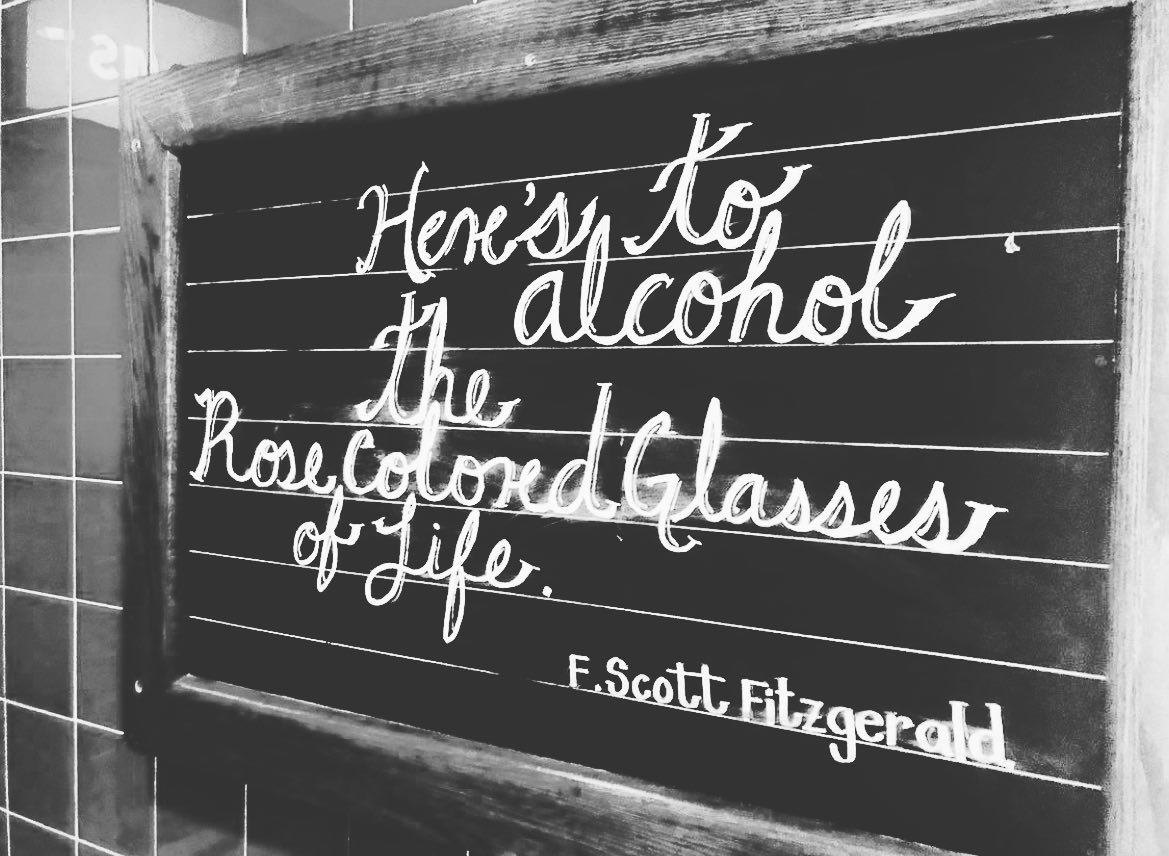 Here's to
alcohol
the
Rose Colored Glasses
of Life.
F. Scott Fitzgerald